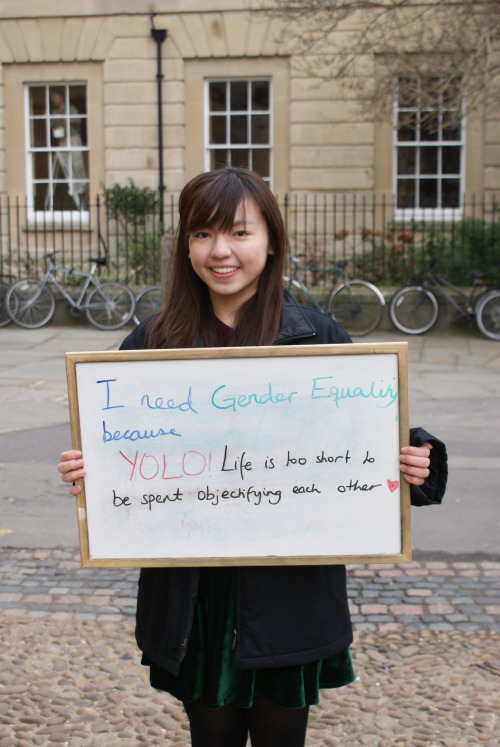 I need Gender Equality
because
YOLO! Life is too short to
be spent objectifying each other ♥